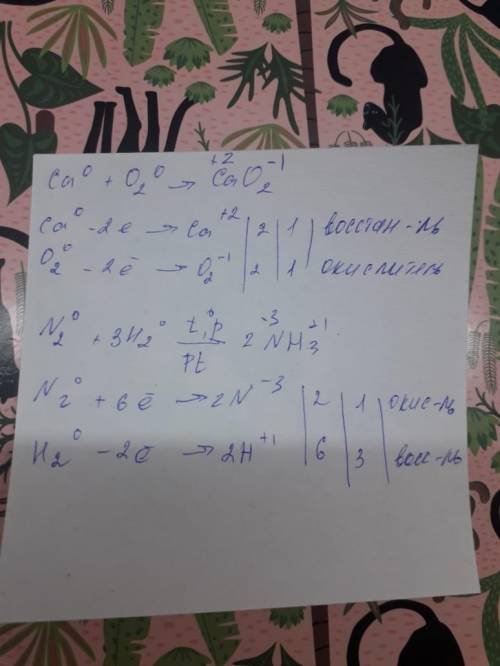 Ca⁰ + O₂⁰ → Ca⁺²O₂⁻¹
Ca⁰ -2e → Ca⁺² | 2 | 1 | восстан-ль
O₂⁰ - 2ē → O₂⁻¹ | 2 | 1 окислитель
N₂⁰ + 3H₂⁰ t⁰,p / Pt 2N⁻³H₃⁺¹
N₂⁰ + 6ē → 2N⁻³ | 2 | 1 | окис-ль
H₂⁰ - 2ē → 2H⁺¹ | 6 | 3 | восс-ль